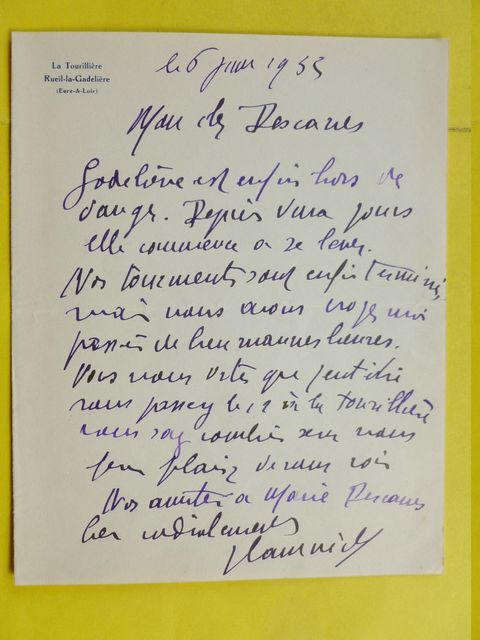 La Tourillière
Rueil-la-Gadelière
(Eure-&-Loir)
le 6 juin 1933
Mon cher Descaves
Godeliève est enfin hors de
danger. Depuis deux jours
elle commence a se lever.
Nos tourments sont enfin terminés
mais nous avons croyez moi
passés de bien mauvaises heures.
Vous nous dites que peut être
vous passez le 12 à la Tourillière
vous savez combien sera nous
fera plaisir de vous voir
Nos amitiés a Marie Descaves
bien cordialement
Vlaminck